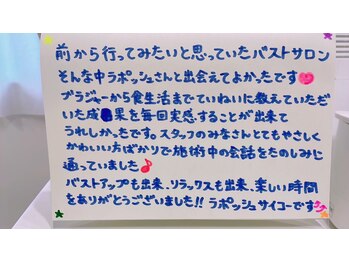 前から行ってみたいと思っていたバストサロン
そんな中ラポッシュさんと出会えてよかったです
ブラジャーから食生活までていねいに教えていただ
いた成果を毎回実感することが出来て
うれしかったです。スタッフのみなさんとてもやさしく
かわいい方ばかりで施術中の会話をたのしみに
通っていました♪
バストアップも出来、リラックスも出来、楽しい時間
をありがとうございました!! ラポッシュサイコーです